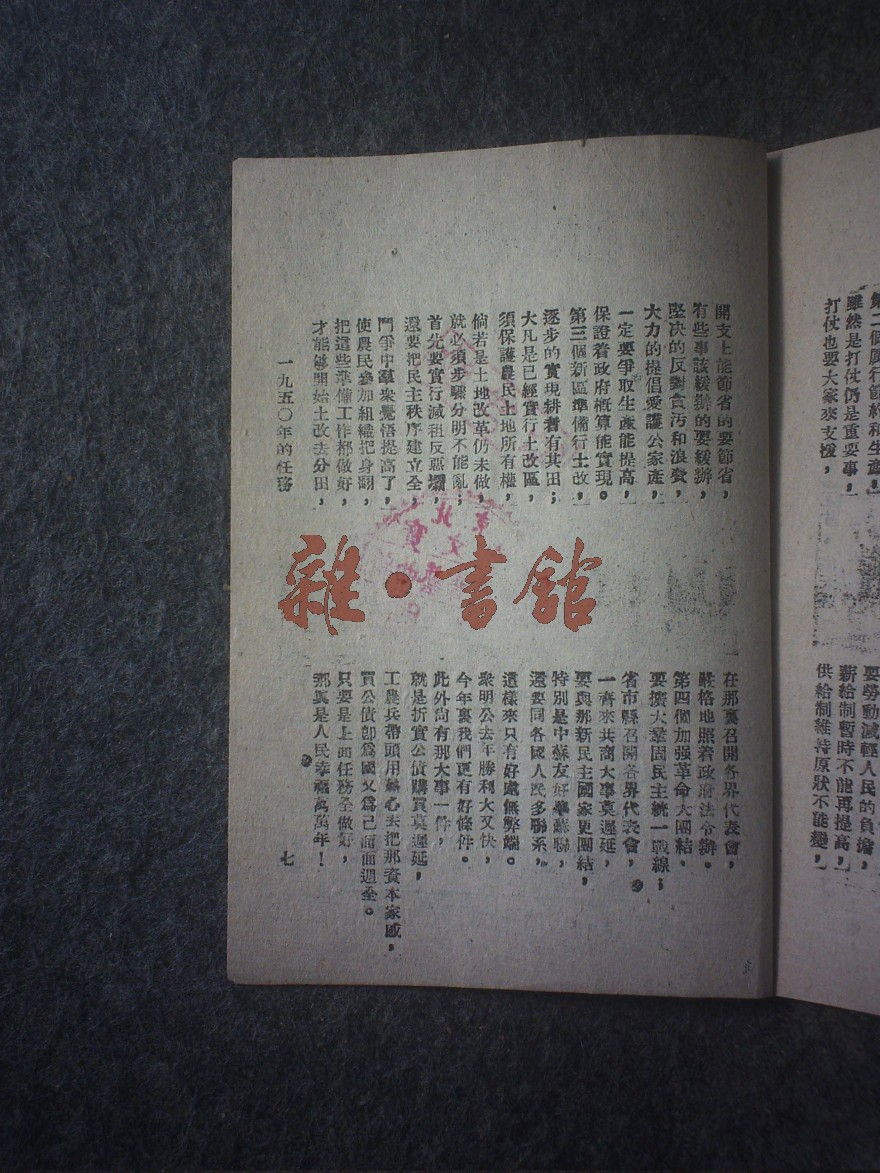 第二個厲行節約和生產，
雖然是打仗仍是重要事，
打仗也要大家來支援，
要勞動減輕人民的負擔，
薪給制暫時不能再提高，
供給制維持原狀不能變，
開支上能節省的要節省，
有些事該緩辦的要緩辦，
堅决的反對貪汚和浪費，
大力的提倡愛護公家產，
一定要爭取生產能提高，
保證着政府概算能實現。
第三個新區準備行土改，
逐步的實現耕者有其田；
大凡是已經實行土改區，
須保護農民土地所有權，
倘若是土地改革仍未做，
就必須步驟分明不能亂；
首先要實行減租反惡霸，
還要把民主秩序建立全，
鬥爭中羣衆覺悟提高了，
使農民參加組織把身翻，
把這些準備工作都做好，
才能够開始土改去分田，
在那裏召開各界代表會，
嚴格地照着政府法令辦。
第四個加强革命大團結，
要擴大鞏固民主統一戰線；
省市縣召開各界代表會，
一齊來共商大事莫遲延，
要與那新民主國家更團結，
特別是中蘇友好學蘇聯，
還要同各國人民多聯系，
這樣來只有好處無弊端。
衆明公去年勝利大又快，
今年裏我們更有好條件。
此外尚有那大事一件，
就是折實公債購買莫遲延，
工農兵帶頭用熱心去把那資本家感，
買公債卽爲國又爲己面面週全。
只要是上面任務全做好，
那眞是人民幸福萬萬年！
一九五〇年的任務
七
雜·書館